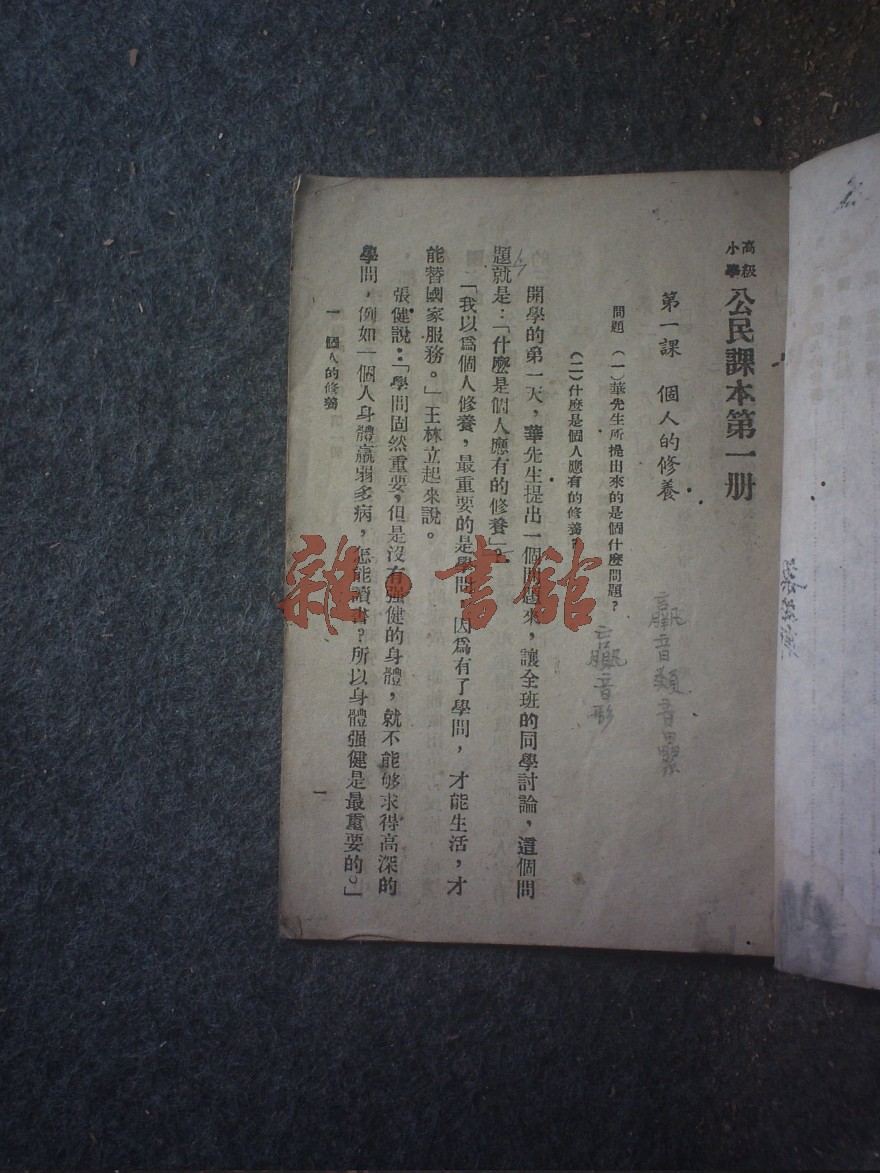 高級小學 公民課本第一册
第一課 個人的修養
問題 (一)華先生所提出來的是個什麼問題?
(二)什麼是個人應有的修養?
開學的第一天,華先生提出一個問題來,讓全班的同學討論,這個問
題就是:「什麼是個人應有的修養」?
「我以爲個人修養,最重要的是學問,因爲有了學問,才能生活,才
能替國家服務。」王林立起來說。
張健說:「學問固然重要,但是沒有强健的身體,就不能够求得高深的
學問,例如一個人身體羸弱多病,怎能讀書?所以身體强健是最重要的。」
一 個人的修養
一
音類音
音形
雜·書館